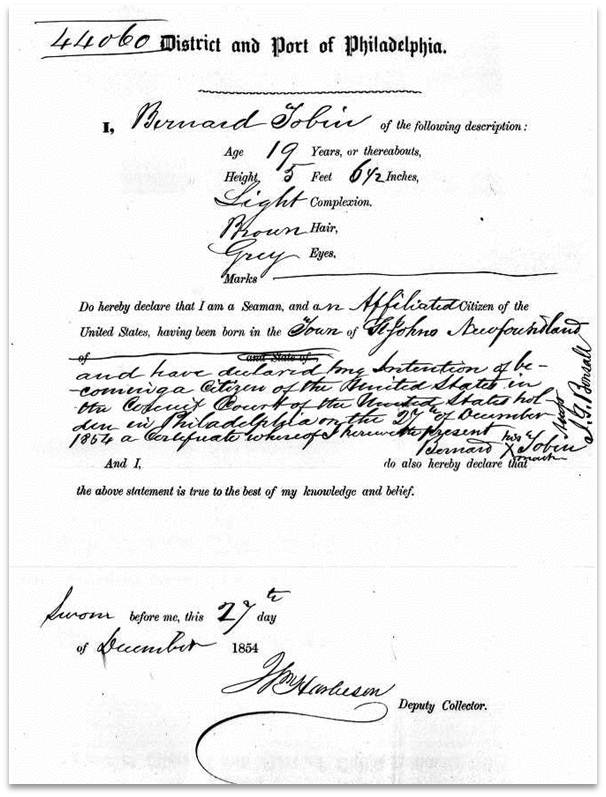 44060 District and Port of Philadelphia.
I, Bernard Tobin of the following description:
Age 19 Years, or thereabouts,
Height, 5 Feet 6 1/2 Inches,
Light Complexion.
Brown Hair,
Grey Eyes,
Marks
Do hereby declare that I am a Seaman, and an Affiliated Citizen of the
United States, having been born in the Town of St Johns Newfoundland
of and State of
and have declared my Intention of be-
coming a Citizen of the United States in
the Circuit Court of the United States hol-
den in Philadelphia on the 27th of December
1854 a Certificate whereof I herewith present
Bernard his X mark Tobin
And I, do also hereby declare that
the above statement is true to the best of my knowledge and belief.
Sworn before me, this 27th day
of December 1854
Deputy Collector.